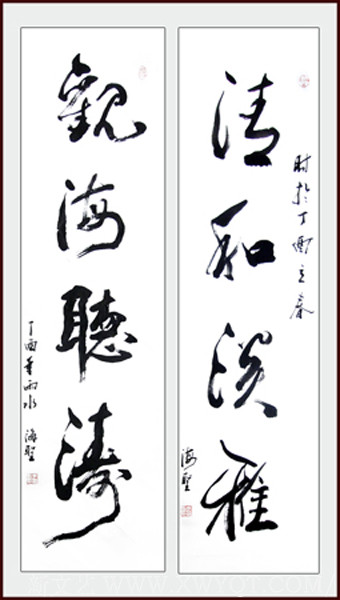 清和淡雅
时於丁酉立春
海聖
觀海聽濤
丁酉年雨水 海聖